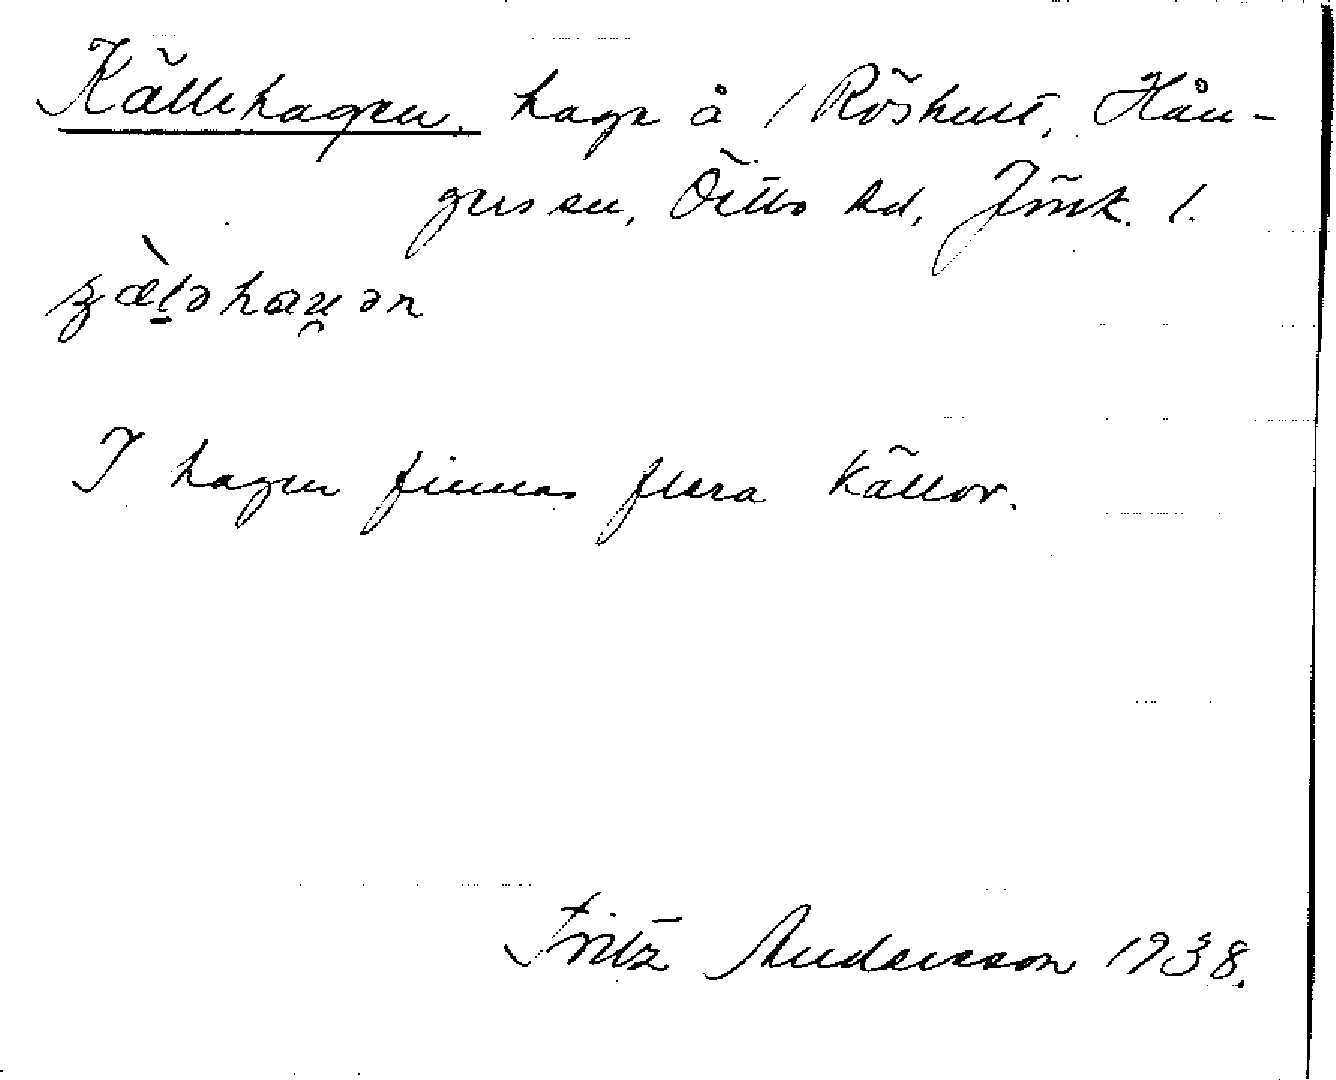 Källehagen, hage å / Röshult, Hån-
ger sn, Östbo hd, Jönk. l.
I hagen finnas flera källor.
Fritz Andersson 1938.